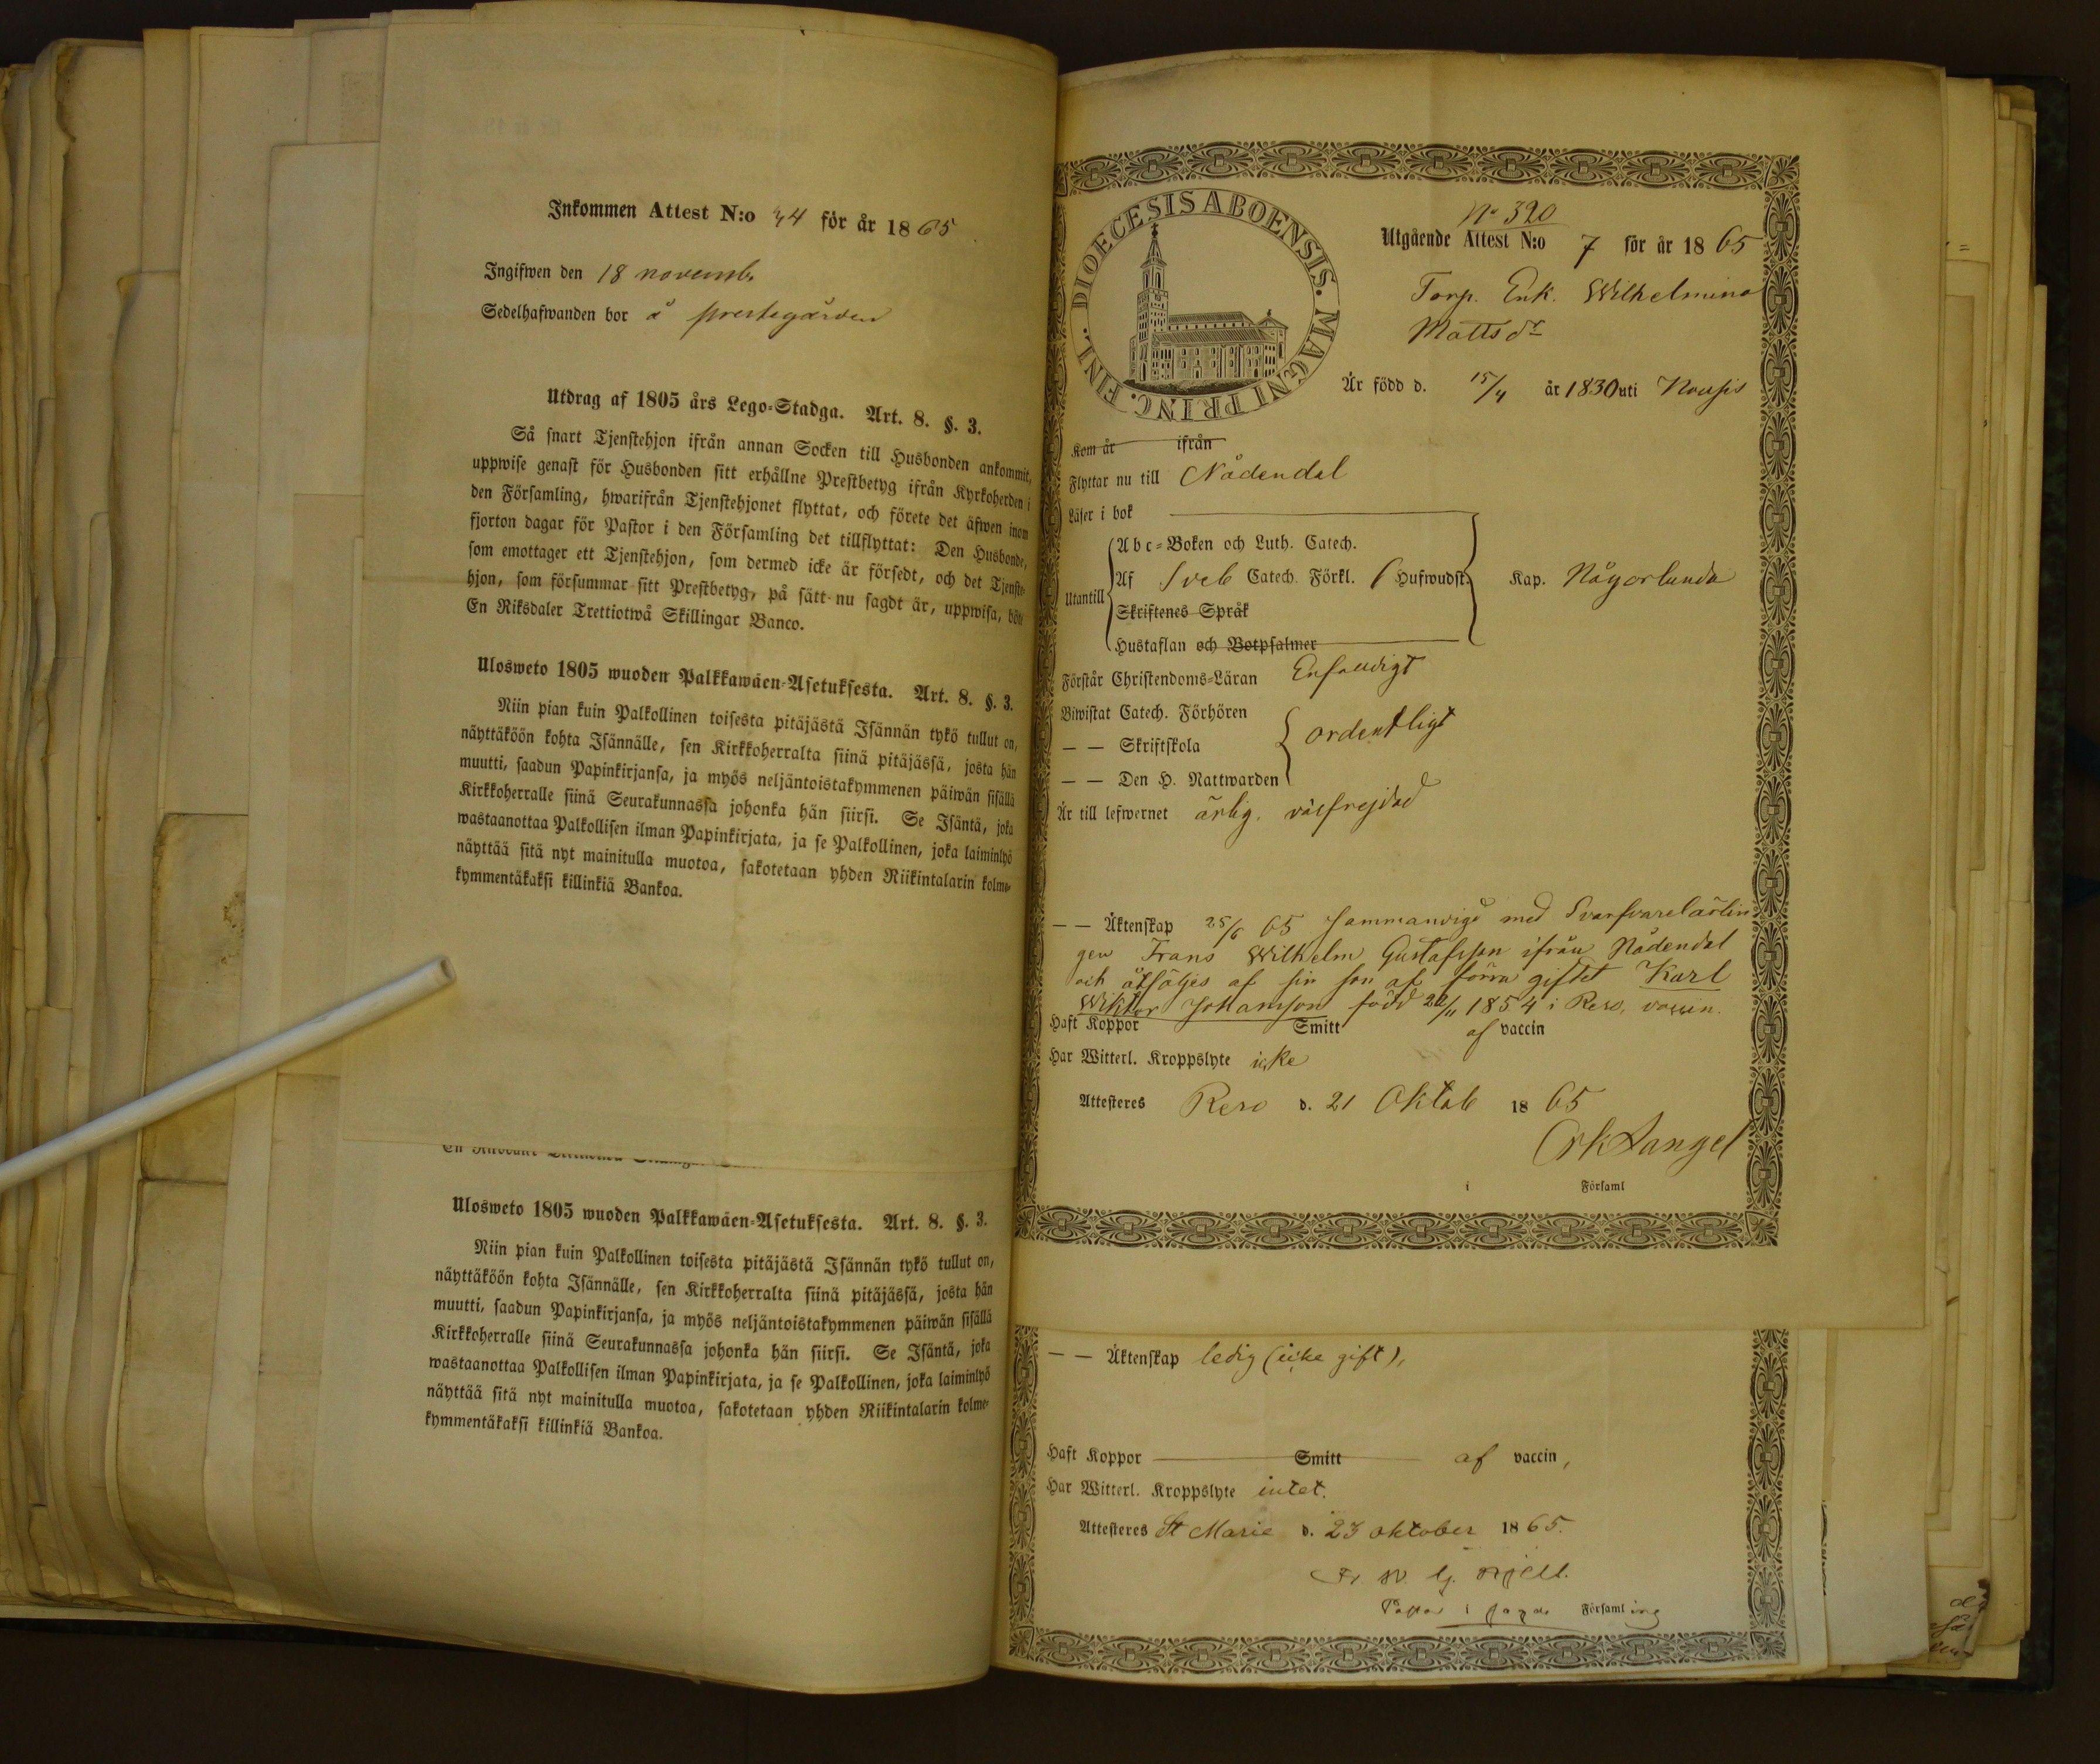 Inkommen Attest N:o 34 för år 1865
Ingifwen den 18 novemb.
Sedelhafwanden bor å prestegården
Utdrag af 1805 års Lego-Stadga. Art. 8. §. 3.
Så snart Tjenstehjon ifrån annan Socken till Husbonden ankommit,
uppwise genast för Husbonden sitt erhållne Prestbetyg ifrån Kyrkoherden i
den Församling, hwarifrån Tjenstehjonet flyttat, och förete det äfwen inom
fjorton dagar för Pastor i den Församling det tillflyttat: Den Husbonde,
som emottager ett Tjenstehjon, som dermed icke är försedt, och det Tjenste-
hjon, som försummar sitt Prestbetyg, på sätt nu sagdt är, uppwisa, böte
En Riksdaler Trettiotwå Skillingar Banco.
Ulosweto 1805 wuoden Palkkawäen-Asetuksesta. Art. 8. §. 3.
Niin pian kuin Palkollinen toisesta pitäjästä Isännän tykö tullut on,
näyttäköön kohta Isännälle, sen Kirkkoherralta siinä pitäjässä, josta hän
muutti, saadun Papinkirjansa, ja myös neljäntoistakymmenen päiwän sisällä
Kirkkoherralle siinä Seurakunnassa johonka hän siirsi. Se Isäntä, joka
wastaanottaa Palkollisen ilman Papinkirjata, ja se Palkollinen, joka laiminlyö
näyttää sitä nyt mainitulla muotoa, sakotetaan yhden Riikintalarin kolme-
kymmentäkaksi killinkiä Bankoa.
Ulosweto 1805 wuoden Palkkawäen-Asetuksesta. Art. 8. §. 3.
Niin pian kuin Palkollinen toisesta pitäjästä Isännän tykö tullut on,
näyttäköön kohta Isännälle, sen Kirkkoherralta siinä pitäjässä, josta hän
muutti, saadun Papinkirjansa, ja myös neljäntoistakymmenen päiwän sisällä
Kirkkoherralle siinä Seurakunnassa johonka hän siirsi. Se Isäntä, joka
wastaanottaa Palkollisen ilman Papinkirjata, ja se Palkollinen, joka laiminlyö
näyttää sitä nyt mainitulla muotoa, sakotetaan yhden Riikintalarin kolme-
kymmentäkaksi killinkiä Bankoa.
DIOECESIS ABOENSIS. MAGNI PRINC. FINL.
No 320
Utgående Attest N:o 7 för år 1865
Torp. Enk. Wilhelmina
Mattsdr
Är född d. 15/4 år 1830 uti Nousis
Kom år ifrån
Flyttar nu till Nådendal
Läser i bok
Utantill
Abc-Boken och Luth. Catech.
Af Sveb Catech. Förkl. Hufwudst. Kap. Någorlunda
Skriftenes Språk
Hustaflan och Botpsalmer
Förstår Christendoms-Läran Enfaldigt
Biwistat Catech. Förhören
— — Skriftskola ordentligt
— — Den H. Nattwarden
Är till lefwernet ärlig, välfrejdad
— — Äktenskap 25/6 65 Sammanvigd med Svarfvarelärlin
gen Frans Wilhelm Gustafsson ifrån Nådendal
och åtföljes af sin son af förra giftet Karl
Wiktor Johansson född 22/11 1854 i Reso, vaccin.
Haft Koppor Smitt af vaccin
Har Witterl. Kroppslyte icke
Attesteres Reso d. 21 Oktob 1865
i Församl
— — Äktenskap ledig (icke gift),
Haft Koppor Smitt af vaccin,
Har Witterl. Kroppslyte intet.
Attesteres St Marie d. 23 oktober 1865.
Pastor i Församling